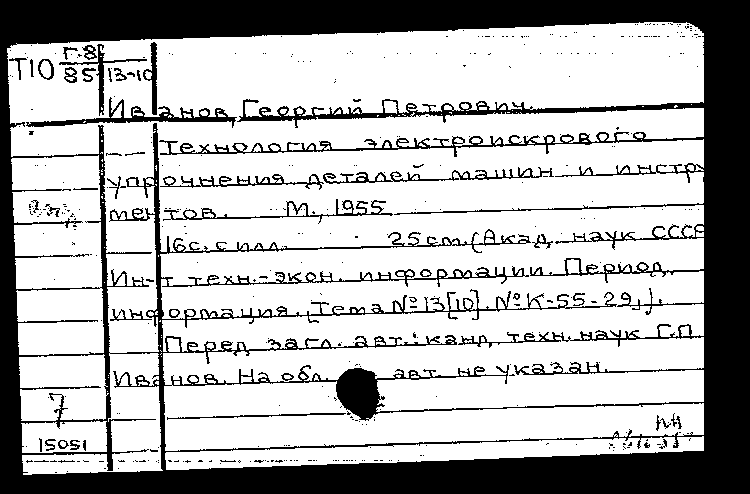 Т10 Г.8/85 13-10
Иванов, Георгий Петрович.
Технология электроискрового
упрочнения деталей машин и инстру
ментов. М., 1955
16с. с илл. 25 см. (Акад. наук СССР
Ин-т техн.-экон. информации. Период.
информация. [Тема № 13[10]. № К-55-29,].
Перед загл. авт.: канд. техн. наук Г.П.
Иванов. На обл. авт. не указан.
7
15051